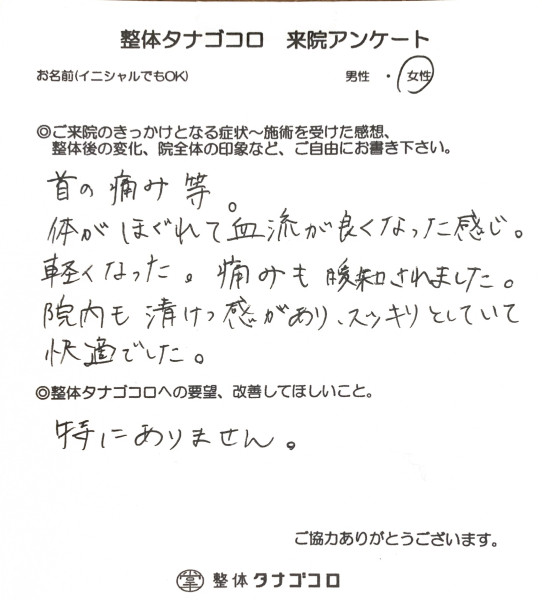 整体タナゴコロ 来院アンケート
お名前(イニシャルでもOK) 男性 ・ 女性
◎ご来院のきっかけとなる症状～施術を受けた感想、
整体後の変化、院全体の印象など、ご自由にお書き下さい。
首の痛み等。
体がほぐれて血流が良くなった感じ。
軽くなった。痛みも緩和されました。
院内も清けつ感があり、スッキリとしていて
快適でした。
◎整体タナゴコロへの要望、改善してほしいこと。
特にありません。
ご協力ありがとうございます。
掌 整体タナゴコロ